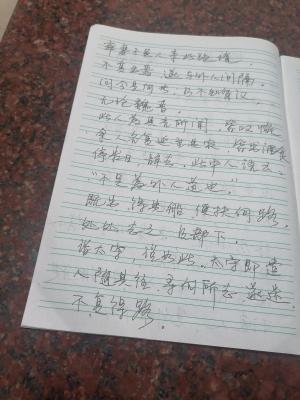 率妻子邑人来此绝境,
不复出焉, 遂与外人间隔.
问今是何世, 乃不知有汉,
无论魏晋.
此人为具言所闻, 皆叹惋.
余人各复延至其家, 皆出酒食
停数日, 辞去, 此中人语云:
"不足为外人道也."
既出, 得其船, 便扶向路,
处处志之. 及郡下,
诣太守, 说如此. 太守即遣
人随其往, 寻向所志, 遂迷
不复得路.